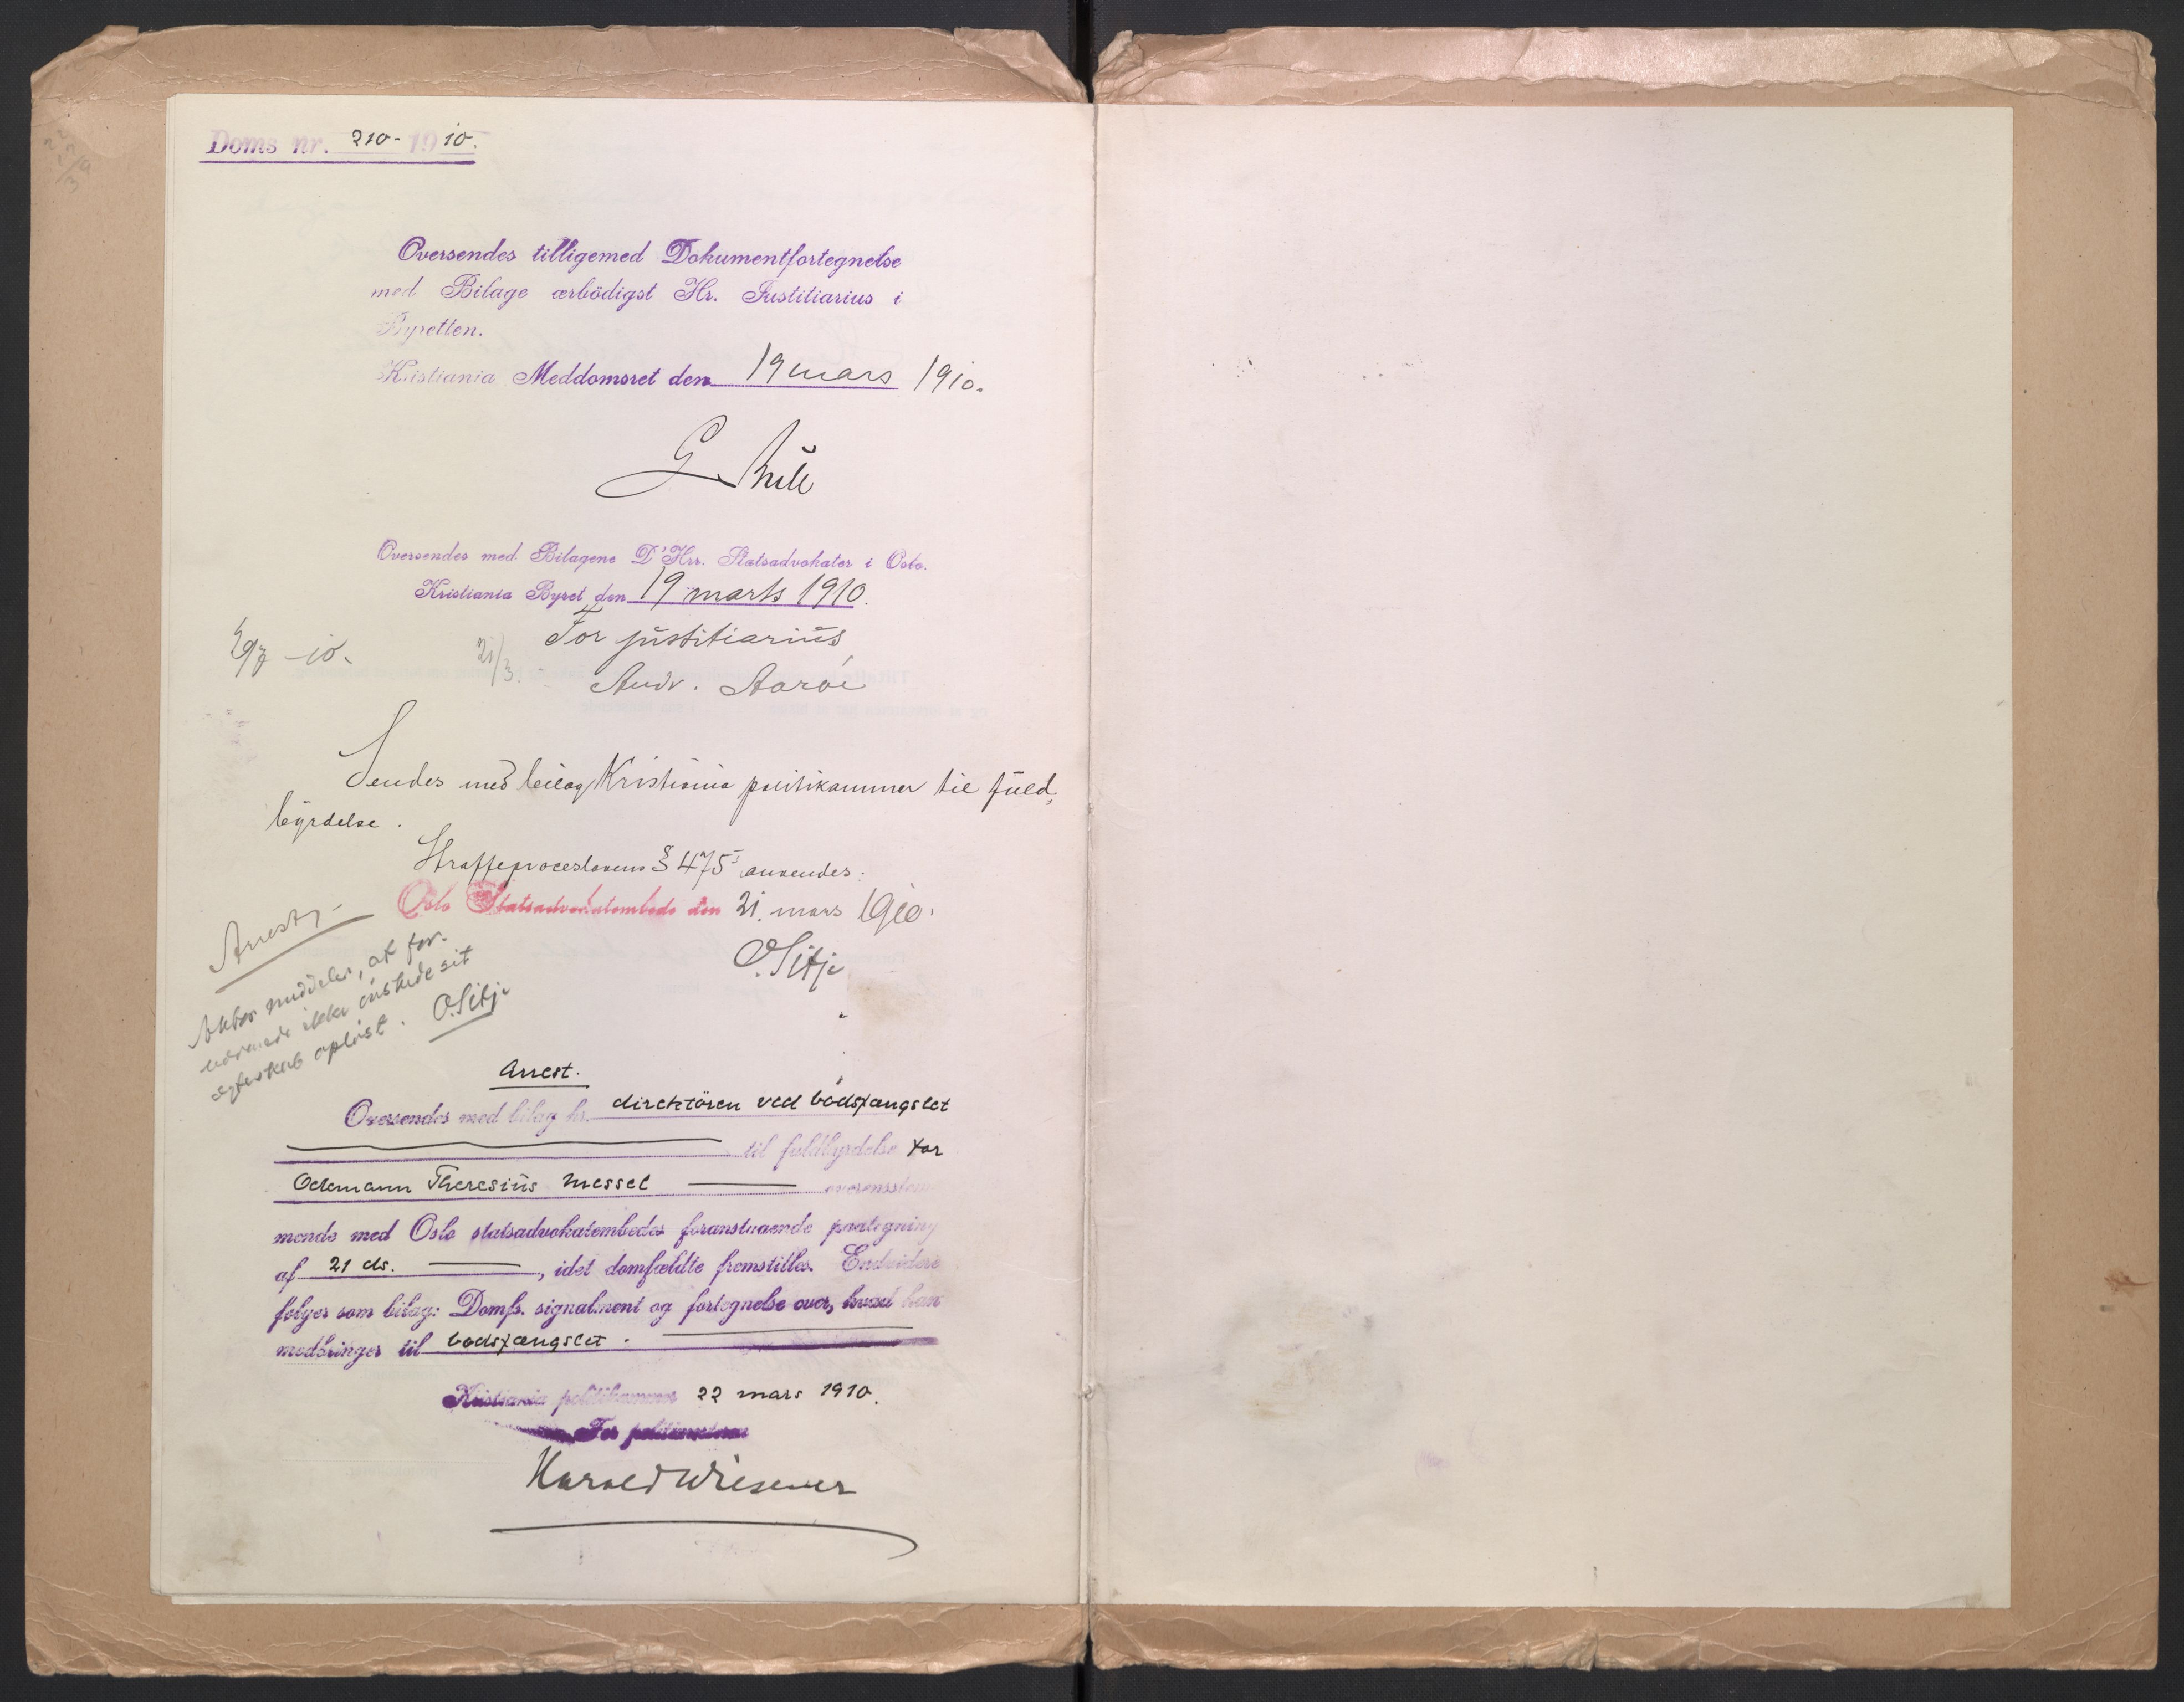 Doms nr. 210-1910.
Oversendes tilligemed Dokumentfortegnelse
med Bilage ærbödigst Hr. Justitiarius i
Byretten.
Kristiania Meddomsret den 19 mars 1910.
G
Oversendes med Bilagene D'Hrr. Statsadvokater i Oslo.
Kristiania Byret den 19 marts 1910.
For justitiarius
Andr. Aaröe
21/3.
Sendes med bilag Kristiania politikammer til fuld,
byrdelse.
Straffeproceslovens § 475 anvendes.
Oslo Statsadvokatembede den 21. mars 1910.
O. Sitje
Arrest,-
Aktor meddeler, at for-
nærmede ikke önskede sit
egteskab oplöst. O. Sitje
Arrest.
Oversendes med bilag hr. direktören ved bodsfængslet
til fuldbyrdelse for
Oclmann Theresius Messel overensstem
mende med Oslo statsadvokatembedes foranstaaende paategning
af 21 ds. , idet domfældte fremstilles. Endvidere
følger som bilag: Domfs. signalment og fortegnelse over, hvad han
medbringer til bodsfængslet.
Kristiania politikammer 22 mars 1910.
For politimesteren
Harald Wiesener